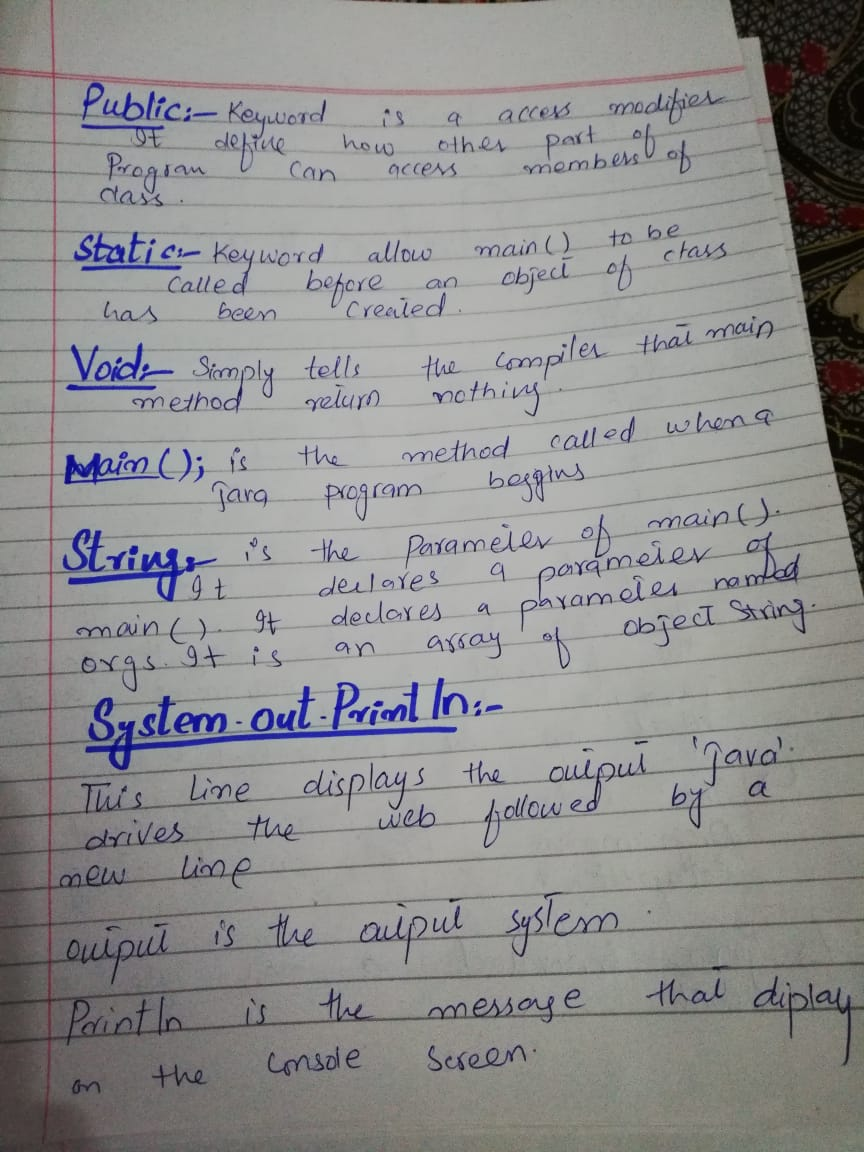 Public:- Keyword is a access modifier
It define how other part of
Program can access members of
class.
Static:- Keyword allow main() to be
called before an object of class
has been created.
Void:- Simply tells the compiler that main
method return nothing.
Main(); is the method called when a
Java program beggins
String:- is the Parameter of main().
It declares a parameter of
main(). It declares a parameter named
orgs. It is an array of object String.
System.out.Println:-
This line displays the output 'Java'.
drives the web followed by a
new line
output is the output system.
Println is the message that diplay
on the console screen.